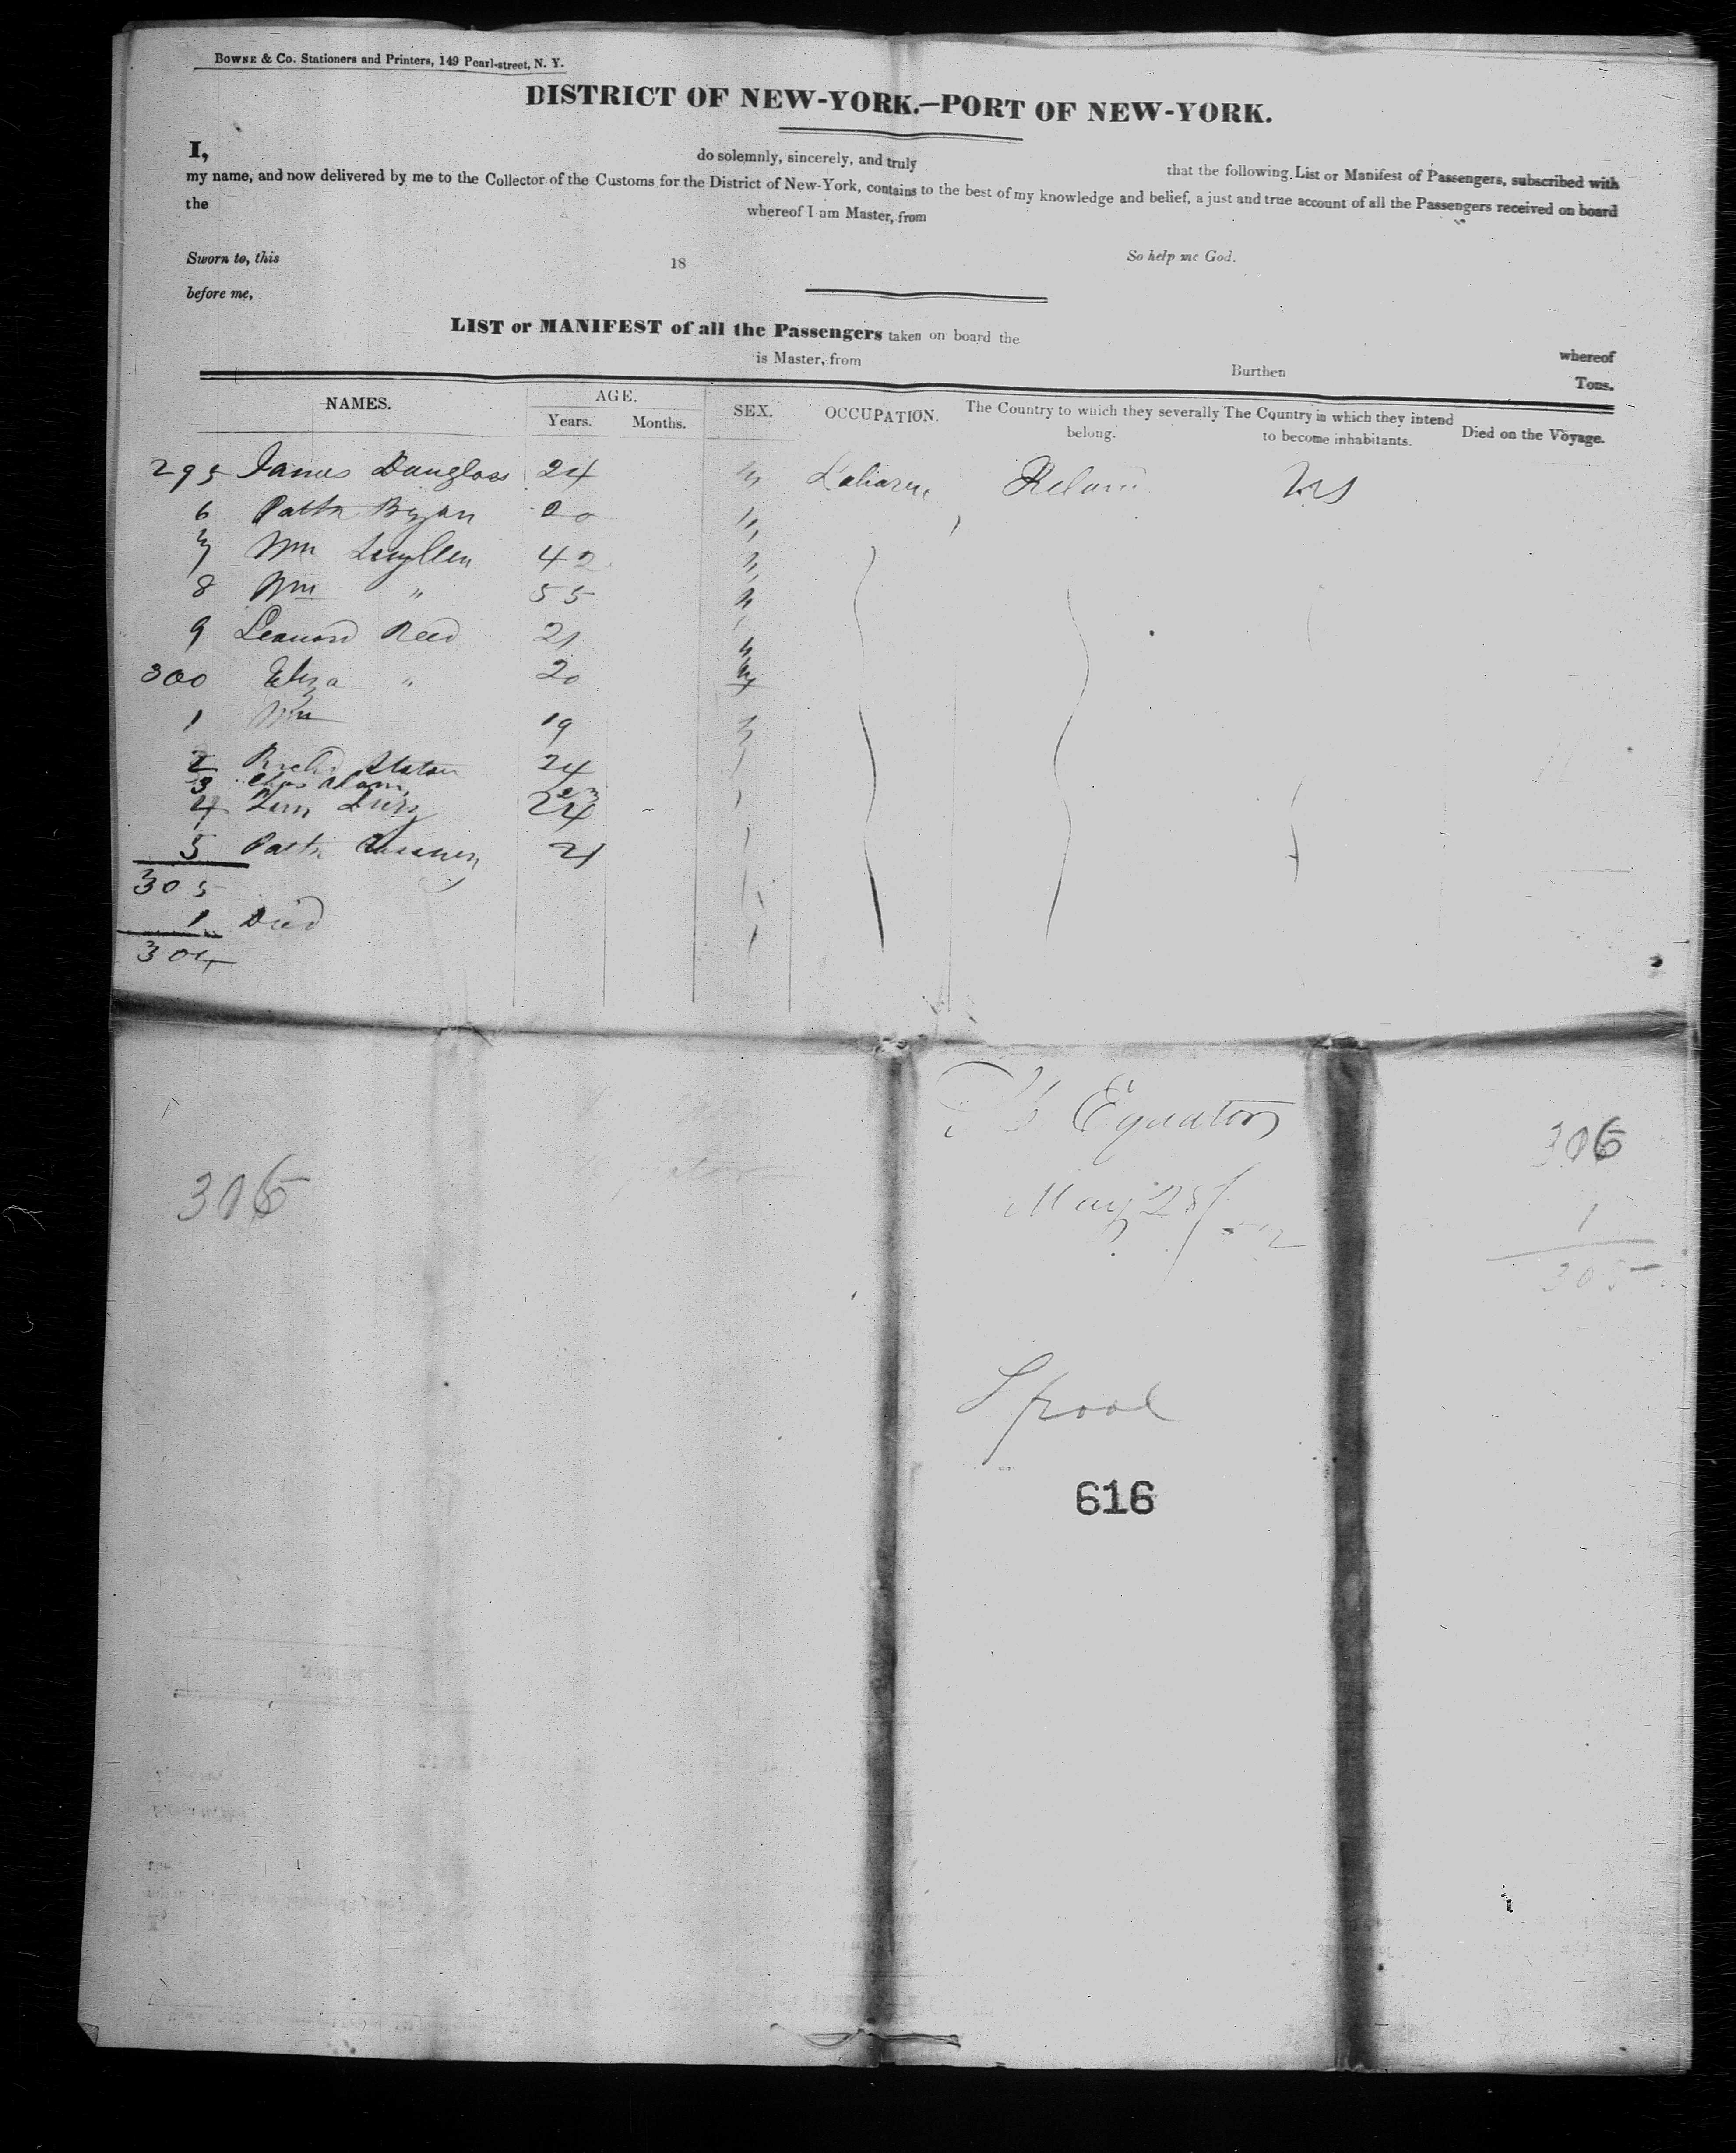 BOWNE & Co. Stationers and Printers, 149 Pearl-street, N. Y.
DISTRICT OF NEW-YORK.—PORT OF NEW-YORK.
I, do solemnly, sincerely, and truly that the following List or Manifest of Passengers, subscribed with
my name, and now delivered by me to the Collector of the Customs for the District of New-York, contains to the best of my knowledge and belief, a just and true account of all the Passengers received on board
the whereof I am Master, from
Sworn to, this 18 So help me God.
before me,
LIST or MANIFEST of all the Passengers taken on board the whereof
is Master, from Burthen Tons.
NAMES. AGE. SEX. OCCUPATION. The Country to which they severally belong. The Country in which they intend to become inhabitants. Died on the Voyage.
Years. Months.
295 James Dauglass 24 M
6 Pattk Bryan 20
7 Wm 42
8 Wm " 55
9 Leanard Reed 21
300 Eliza " 20
1 Wm 19
2 Richd 24
3 Chas Adams 23
4 24
5 Pattk 21
305
1 Died
304
Equator
May 28/52
306
1
305
306
Lpool
616